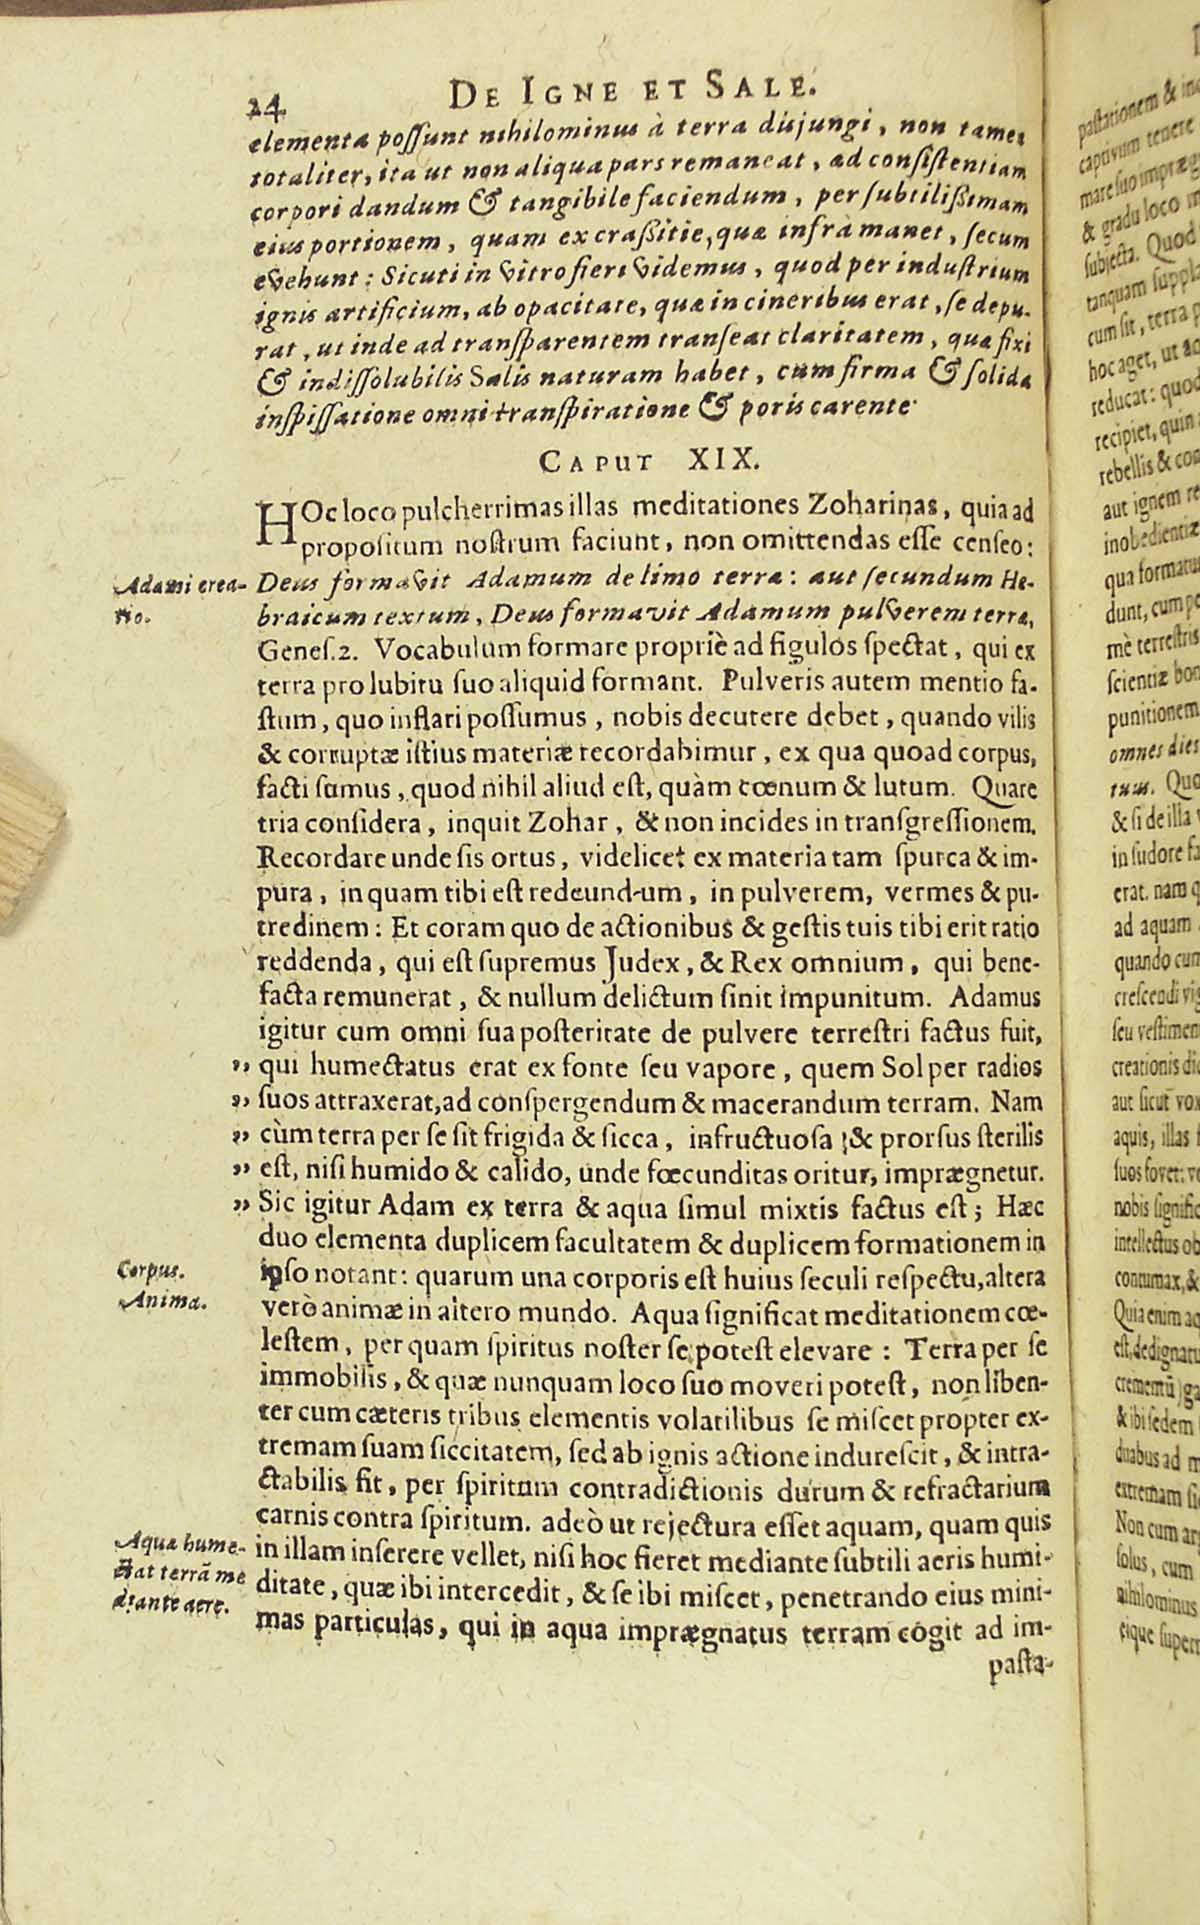 24
DE IGNE ET SALE.
elementa possunt nihilominus à terra disjungi, non tamen
totaliter, ita ut non aliqua pars remaneat, ad consistentiam
corpori dandum & tangibile faciendum, per subtilißimam
eius portionem, quam ex craßitie, quæ infrà manet, secum
evehunt: Sicuti in vitro fieri videmus, quod per industrium
ignis artificium, ab opacitate, quæ in cineribus erat, se depu-
rat, ut inde ad transparentem transeat claritatem, quæ fixi
& indissolubilis Salis naturam habet, cum firma & solida
inspissatione omni transpiratione & poris carente.
CAPUT XIX.
HOc loco pulcherrimas illas meditationes Zoharinas, quia ad
propositum nostrum faciunt, non omittendas esse censeo:
Adami crea-
tio.
Deus formavit Adamum de limo terræ: aut secundum He-
braicum textum, Deus formavit Adamum pulverem terræ,
Genes.2. Vocabulum formare propriè ad figulos spectat, qui ex
terra pro lubitu suo aliquid formant. Pulveris autem mentio fa-
stum, quo inflari possumus, nobis decutere debet, quando vilis
& corruptæ istius materiæ recordabimur, ex qua quoad corpus,
facti sumus, quod nihil aliud est, quàm cœnum & lutum. Quare
tria considera, inquit Zohar, & non incides in transgressionem.
Recordare unde sis ortus, videlicet ex materia tam spurca & im-
pura, in quam tibi est redeund-um, in pulverem, vermes & pu-
tredinem: Et coram quo de actionibus & gestis tuis tibi erit ratio
reddenda, qui est supremus Judex, & Rex omnium, qui bene-
facta remunerat, & nullum delictum sinit impunitum. Adamus
igitur cum omni sua posteritate de pulvere terrestri factus fuit,
,, qui humectatus erat ex fonte seu vapore, quem Sol per radios
,, suos attraxerat, ad conspergendum & macerandum terram. Nam
,, cùm terra per se sit frigida & sicca, infructuosa & prorsus sterilis
,, est, nisi humido & calido, unde fœcunditas oritur, imprægnetur.
,, Sic igitur Adam ex terra & aqua simul mixtis factus est; Hæc
duo elementa duplicem facultatem & duplicem formationem in
Corpus.
Anima.
ipso notant: quarum una corporis est huius seculi respectu, altera
verò animæ in altero mundo. Aqua significat meditationem cœ-
lestem, per quam spiritus noster se potest elevare: Terra per se
immobilis, & quæ nunquam loco suo moveri potest, non liben-
ter cum cæteris tribus elementis volatilibus se miscet propter ex-
tremam suam siccitatem, sed ab ignis actione indurescit, & intra-
ctabilis fit, per spiritum contradictionis durum & refractarium
carnis contra spiritum. adeò ut rejectura esset aquam, quam quis
Aqua hume-
ctat terrã me
diante aere.
in illam inserere vellet, nisi hoc fieret mediante subtili aeris humi-
ditate, quæ ibi intercedit, & se ibi miscet, penetrando eius mini-
mas particulas, qui in aqua imprægnatus terram cogit ad im-
pasta-
pastationem &
captivum tenere
& gradu loco
subjecta. Quod
cum sit, terra
hoc aget, ut
reducat: quod
recipiet, quin
rebellis &
aut ignem
inobedientiæ
mè terrestris
scientiæ
punitionem
omnes dies
tuus.
& si de illa
in sudore
erat. nam
ad aquam
quando
crescendi
creationis
aut sicut
aquis, illas
suos fovet:
nobis
intellectus
contumax, &
Quia enim
& ibi sedem
duabus ad
Non cum
solus, cum
nihilominus